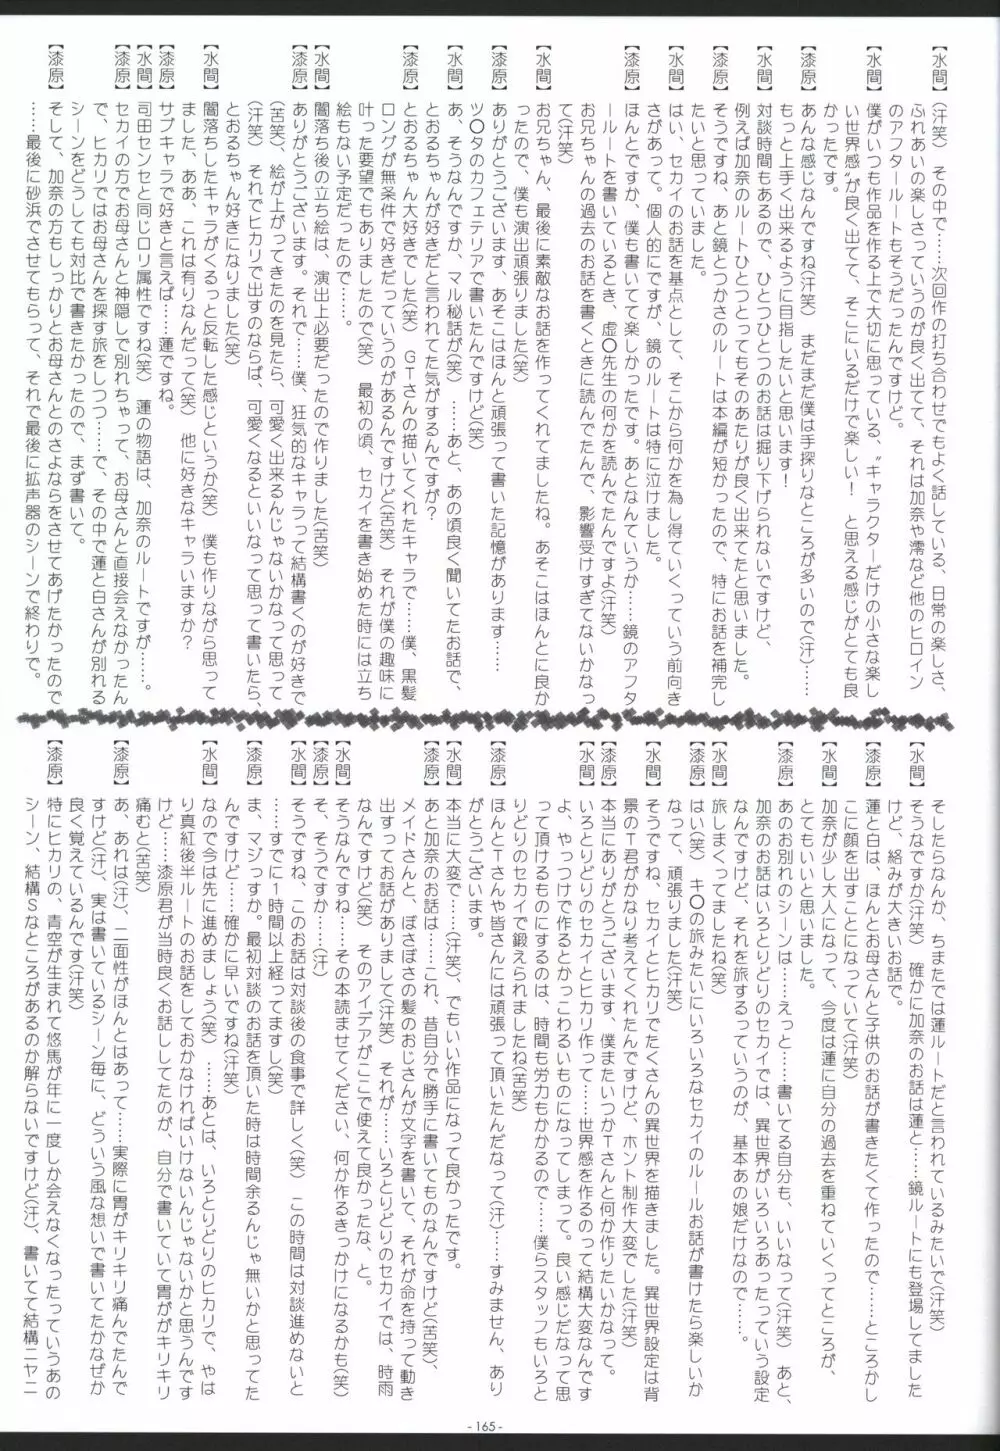 【水間】(汗笑)　その中で……次回作の打ち合わせでもよく話している、日常の楽しさ、
ふれあいの楽しさっていうのが良く出てて、それは加奈や澪など他のヒロイン
のアフタールートもそうだったんですけど。
【水間】僕がいつも作品を作る上で大切に思っている、〝キャラクターだけの小さな楽し
い世界感〟が良く出てて、そこにいるだけで楽しい！　と思える感じがとても良
かったです。
【漆原】あんな感じなんですね(汗笑)　まだまだ僕は手探りなところが多いので(汗)……
もっと上手く出来るように目指したいと思います！
【水間】対談時間もあるので、ひとつひとつのお話は掘り下げられないですけど、
例えば加奈のルートひとつとってもそのあたりが良く出来てたと思いました。
【漆原】そうですね、あと鏡とつかさのルートは本編が短かったので、特にお話を補完し
たいと思っていました。
【水間】はい、セカイのお話を基点として、そこから何かを為し得ていくっていう前向き
さがあって。個人的にですが、鏡のルートは特に泣けました。
【漆原】ほんとですか、僕も書いてて楽しかったです。あとなんていうか……鏡のアフタ
ールートを書いているとき、虚〇先生の何かを読んでたんですよ(汗笑)
お兄ちゃんの過去のお話を書くときに読んでたんで、影響受けすぎてないかなっ
て(汗笑)
【水間】お兄ちゃん、最後に素敵なお話を作ってくれてましたね。あそこはほんとに良か
ったので、僕も演出頑張りました(笑)
【漆原】ありがとうございます、あそこはほんと頑張って書いた記憶があります……
ツ〇タのカフェテリアで書いたんですけど(笑)
【水間】あ、そうなんですか、マル秘話が(笑)　……あと、あの頃良く聞いてたお話で、
とおるちゃんが好きだと言われてた気がするんですが？
【漆原】とおるちゃん大好きでした(笑)　ＧＴさんの描いてくれたキャラで……僕、黒髪
ロングが無条件で好きだっていうのがあるんですけど(苦笑)　それが僕の趣味に
叶った要望でもありましたので(笑)　最初の頃、セカイを書き始めた時には立ち
絵もない予定だったので……
【水間】闇落ち後の立ち絵は、演出上必要だったので作りました(苦笑)
【漆原】ありがとうございます。それで……僕、狂気的なキャラって結構書くのが好きで
(苦笑)、絵が上がってきたのを見たら、可愛く出来るんじゃないかなって思って
(汗笑)　それでヒカリで出すのならば、可愛くなるといいなって思って書いたら、
とおるちゃん好きになりました(笑)
【水間】闇落ちしたキャラがくるっと反転した感じというか(笑)　僕も作りながら思って
ました、ああ、これは有りなんだって(笑)　他に好きなキャラいますか？
【漆原】サブキャラで好きと言えば……蓮ですね。
【水間】司田センセと同じロリ属性ですね(笑)　蓮の物語は、加奈のルートですが……。
【漆原】セカイの方でお母さんと神隠しで別れちゃって、お母さんと直接会えなかったん
で、ヒカリではお母さんを探す旅をしつつ……で、その中で蓮と白さんが別れる
シーンをどうしても対比で書きたかったので、まず書いて。
【漆原】そして、加奈の方もしっかりとお母さんとのさよならをさせてあげたかったので
……最後に砂浜でさせてもらって、それで最後に拡声器のシーンで終わりで。
そしたらなんか、ちまたでは蓮ルートだと言われているみたいで(汗笑)
【水間】そうなですか(汗笑)　確かに加奈のお話は蓮と……鏡ルートにも登場してました
けど、絡みが大きいお話で。
【漆原】蓮と白は、ほんとお母さんと子供のお話が書きたくて作ったので……ところかし
こに顔を出すことになっていて(汗笑)
【水間】加奈が少し大人になって、今度は蓮に自分の過去を重ねていくってところが、
とてもいいと思いました。
【漆原】あのお別れのシーンは……えっと……書いてる自分も、いいなって(汗笑)　あと、
加奈のお話はいろとりどりのセカイでは、異世界がいろいろあったっていう設定
なんですけど、それを旅するっていうのが、基本あの娘だけなので……。
【水間】旅しまくってましたね(笑)
【漆原】はい(笑)　キ〇の旅みたいにいろいろなセカイのルールお話が書けたら楽しいか
なって、頑張りました(汗笑)
【水間】そうですね、セカイとヒカリでたくさんの異世界を描きました。異世界設定は背
景のＴ君がかなり考えてくれたんですけど、ホント制作大変でした(汗笑)
【漆原】本当にありがとうございます、僕またいつかＴさんと何か作りたいかなって。
【水間】いろとりどりのセカイとヒカリ作って……世界感を作るのって結構大変なんです
よ、やっつけで作るとかっこわるいものになってしまって。良い感じだなって思
って頂けるものにするのは、時間も労力もかかるので……僕らスタッフもいろと
りどりのセカイで鍛えられましたね(苦笑)
【漆原】ほんとＴさんや皆さんには頑張って頂いたんだなって(汗)……すみません、あり
がとうございます。
【水間】本当に大変で……(汗笑)、でもいい作品になって良かったです。
【漆原】あと加奈のお話は……これ、昔自分で勝手に書いてたものなんですけど(苦笑)、
メイドさんと、ぼさぼさの髪のおじさんが文字を書いて、それが命を持って動き
出すってお話がありまして(汗笑)　それが……いろとりどりのセカイでは、時雨
なんですけど(笑)　そのアイデアがここで使えて良かったな、と。
【水間】そうなんですね……その本読ませてください、何か作るきっかけになるかも(笑)
【漆原】そ、そうですか……(汗)
【水間】そうですね、このお話は対談後の食事で詳しく(笑)　この時間は対談進めないと
……すでに１時間以上経ってますし(笑)
【漆原】ま、マジっすか。最初対談のお話を頂いた時は時間余るんじゃ無いかと思ってた
んですけど……確かに早いですね(汗笑)
【水間】なので今は先に進めましょう(笑)　……あとは、いろとりどりのヒカリで、やは
り真紅後半ルートのお話をしておかなければいけないんじゃないかと思うんです
けど……漆原君が当時良くお話ししてたのが、自分で書いていて胃ががキリキリ
痛むと(苦笑)
【漆原】あ、あれは(汗)、二面性がほんとはあって……実際に胃がキリキリ痛んでたんで
すけど(汗)、実は書いているシーン毎に、どういう風な想いで書いてたかなぜか
良く覚えているんです(汗笑)
【漆原】特にヒカリの、青空が生まれて悠馬が年に一度しか会えなくなったっていうあの
シーン、結構Ｓなところがあるのか解らないですけど(汗)、書いてて結構ニヤニ
- 165 -